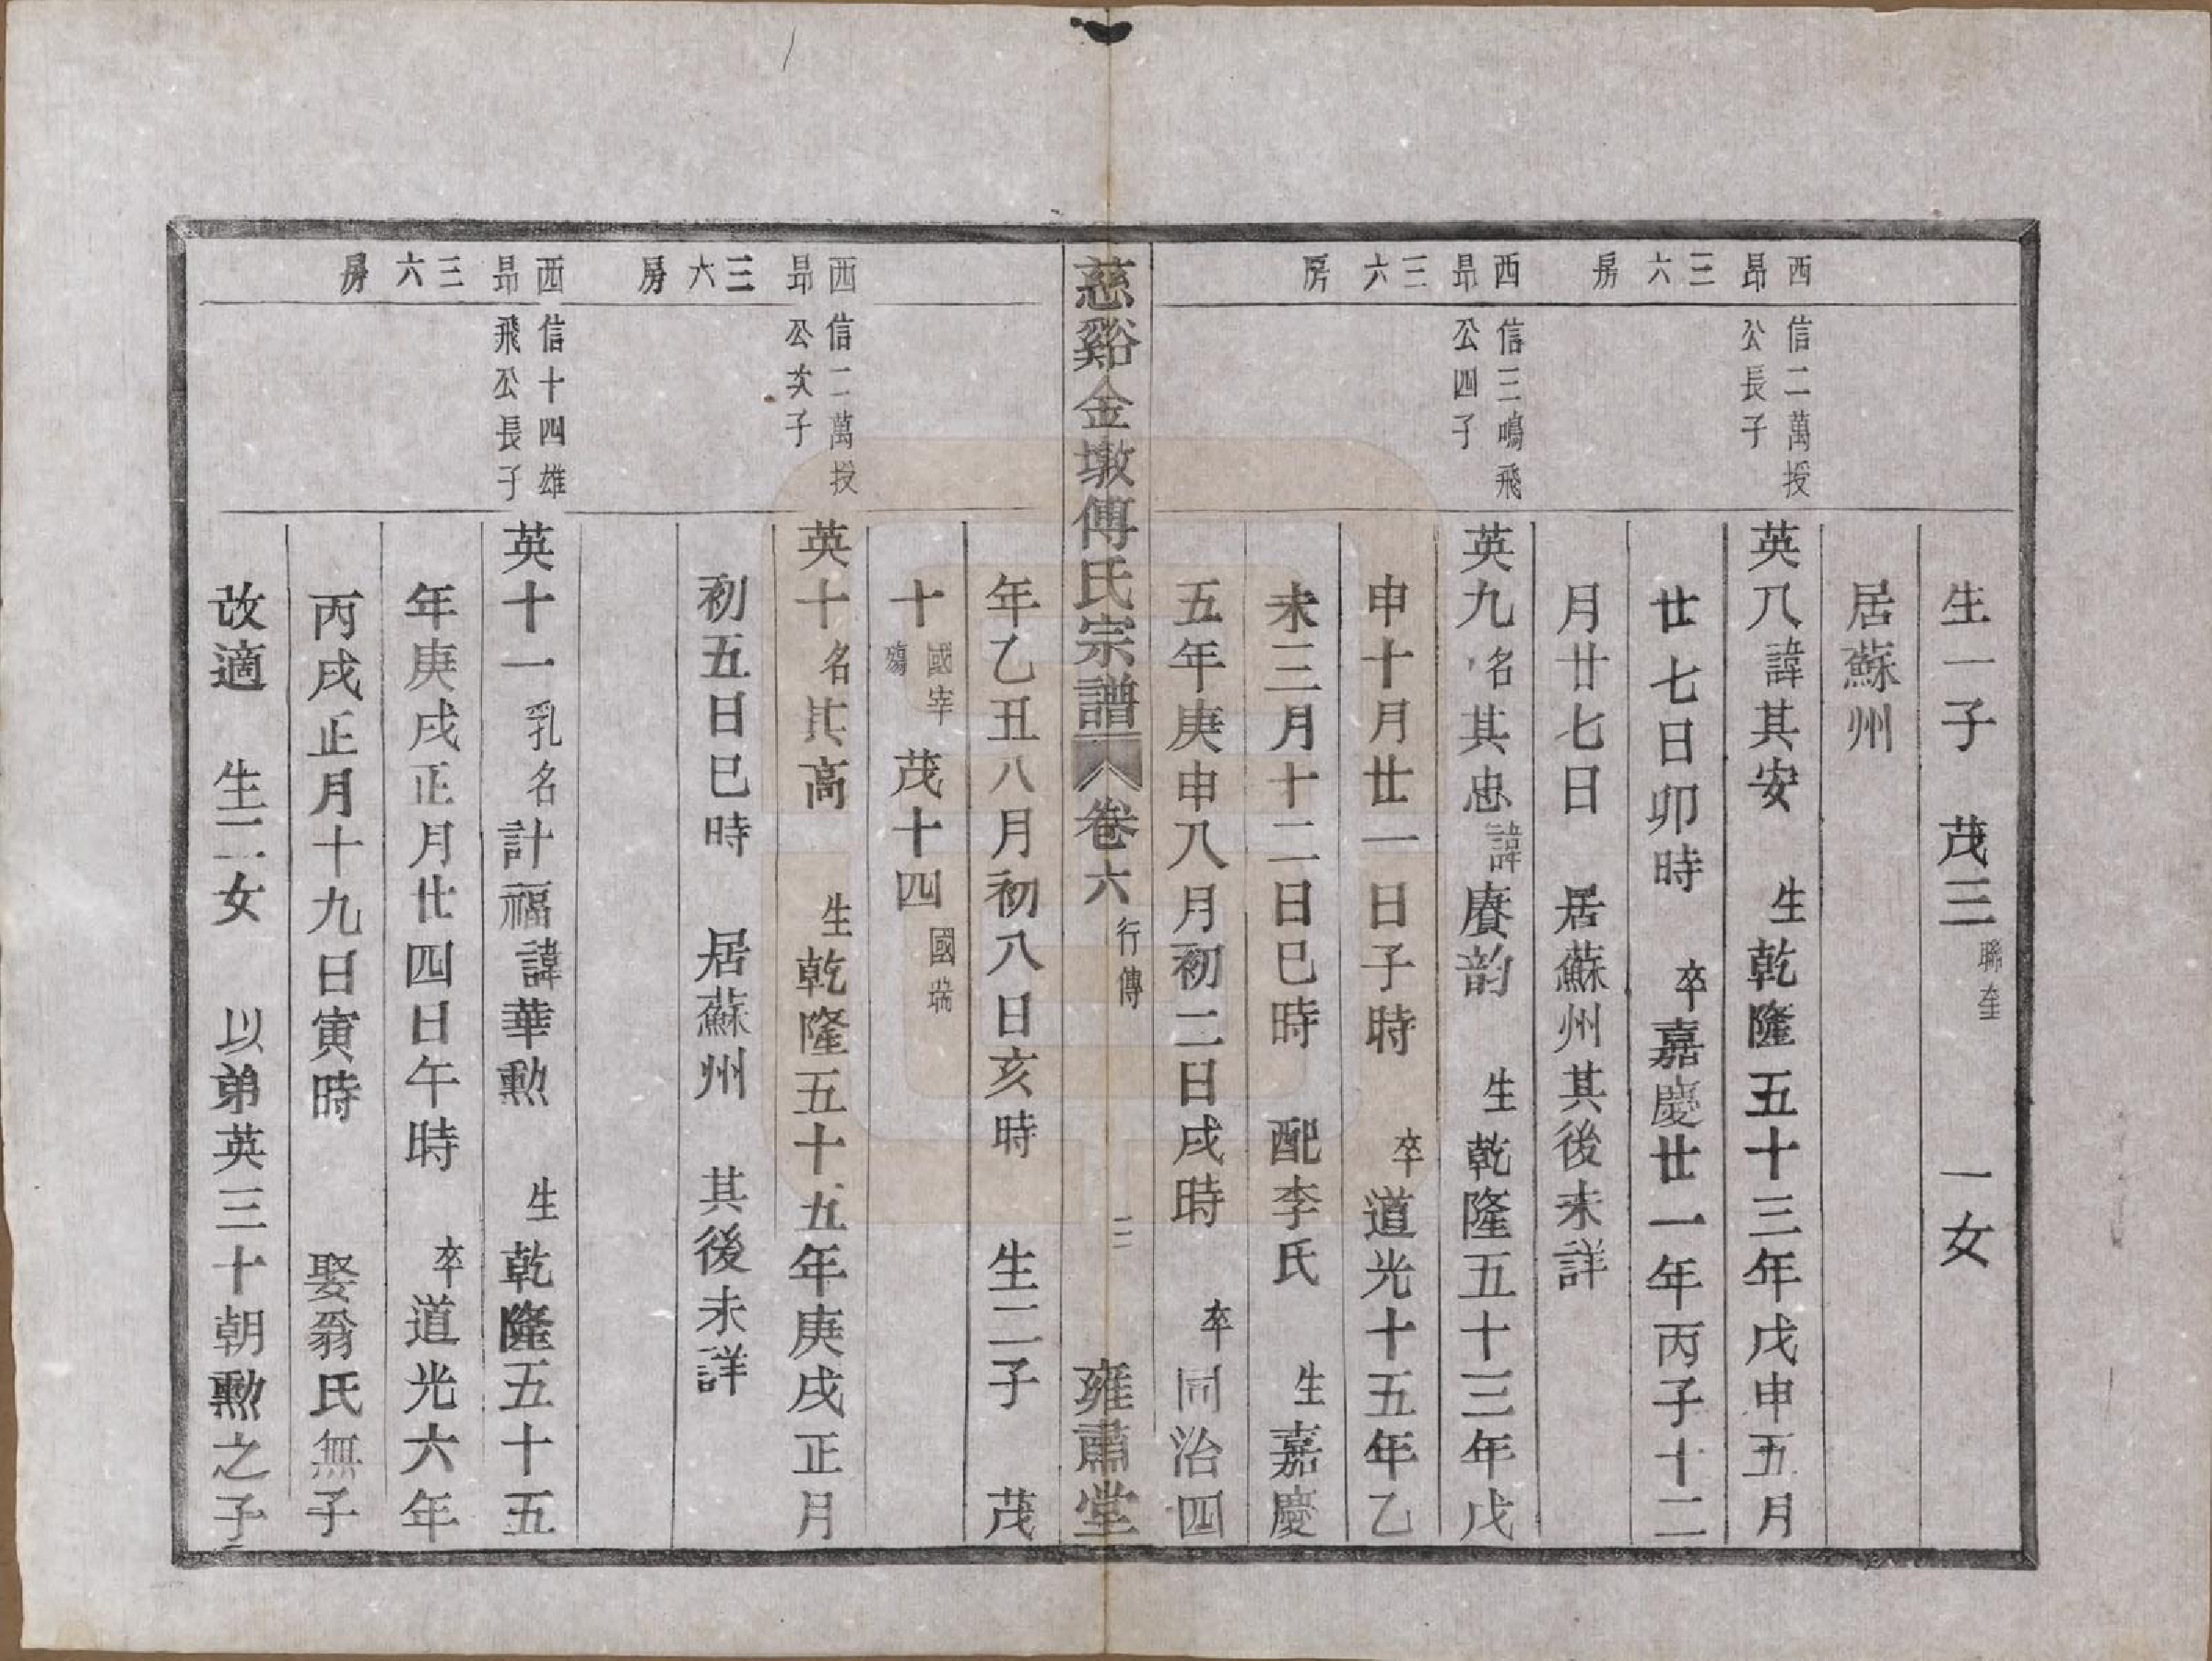 生一子　茂三聯奎　一女
居蘇州
西昻三六房　信二萬授公長子　英八諱其安　生乾隆五十三年戊申五月
廿七日卯時　卒嘉慶廿一年丙子十二
月廿七日　居蘇州其後未詳
西昻三六房　信三鳴飛公四子　英九名其忠諱賡韵　生乾隆五十三年戊
申十月廿一日子時　卒道光十五年乙
未三月十二日巳時　配李氏　生嘉慶
五年庚申八月初二日戌時　卒同治四
慈谿金墩傅氏宗譜　卷六　行傳　二　雍肅堂
年乙丑八月初八日亥時　生二子　茂
十國宰殤　茂十四國瑞
西昻三六房　信二萬授公次子　英十名其高　生乾隆五十九年庚戌正月
初五日巳時　居蘇州　其後未詳
西昻三六房　信十四雄飛公長子　英十一乳名計福諱華勲　生乾隆五十五
年庚戌正月廿四日午時　卒道光六年
丙戌正月十九日寅時　娶翁氏無子
改適　生二女　以弟英三十朝勲之子